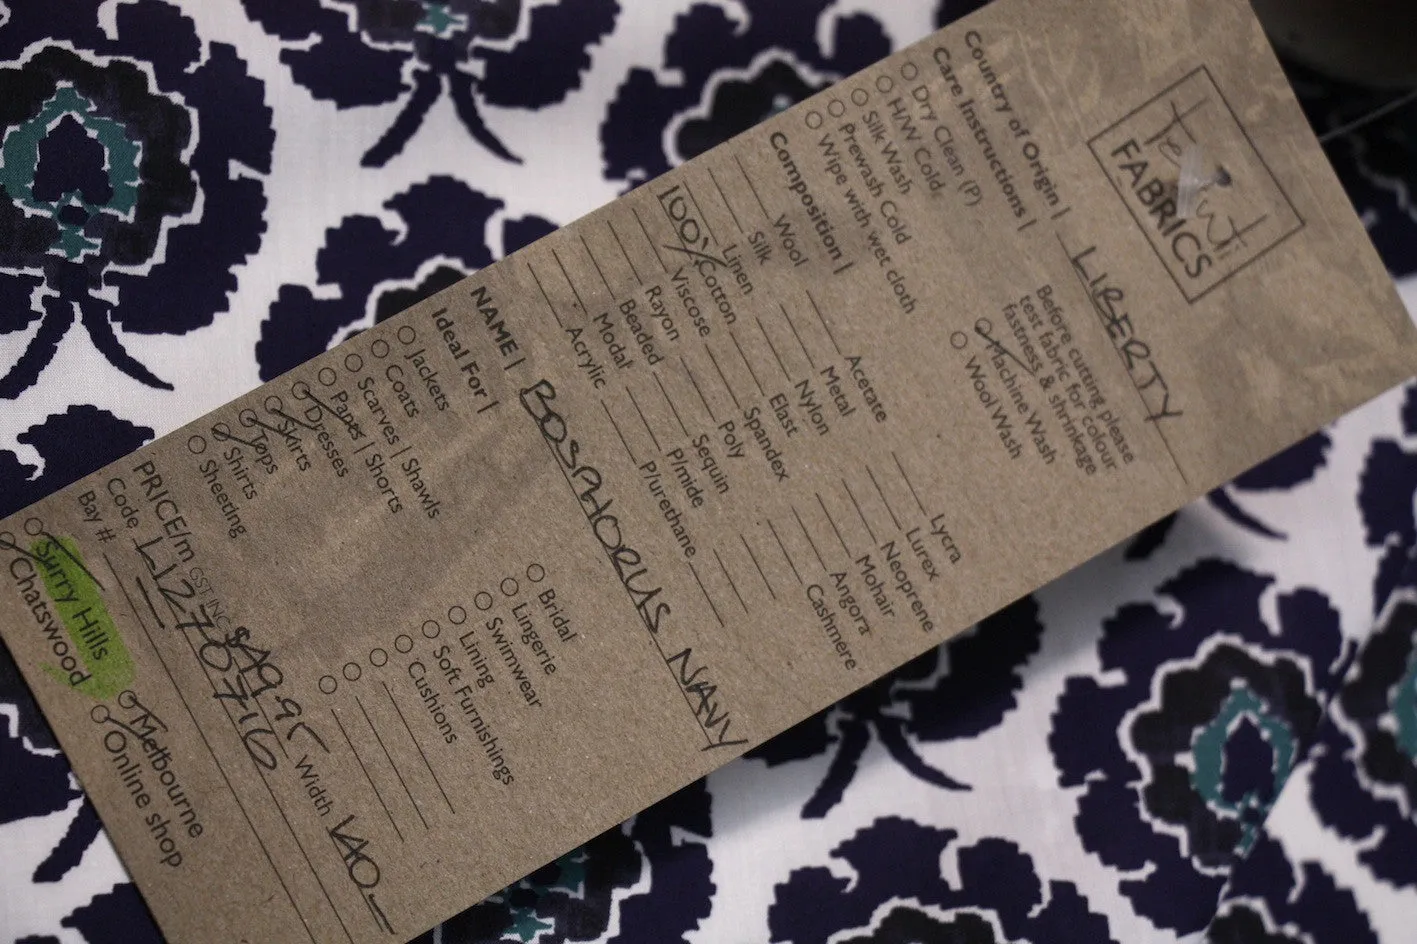 Tessuti
FABRICS
Country of Origin | LIBERTY
Care Instructions |
Dry Clean (P)
H/W Cold
Silk Wash
Prewash Cold
Wipe with wet cloth
Before cutting please
test fabric for colour
fastness & shrinkage
Machine Wash
Wool Wash
Composition |
Wool
Silk
Linen
100% Cotton
Viscose
Rayon
Beaded
Modal
Acrylic
Acetate
Metal
Nylon
Elast
Spandex
Poly
Sequin
P/mide
P/urethane
Lycra
Lurex
Neoprene
Mohair
Angora
Cashmere
NAME | BOSPHORUS NAVY
Ideal For |
Jackets
Coats
Scarves | Shawls
Pants | Shorts
Dresses
Skirts
Tops
Shirts
Sheeting
Bridal
Lingerie
Swimwear
Lining
Soft Furnishings
Cushions
PRICE/m GST INC $49.95 Width 140
Code L1270716
Bay #
Surry Hills
Chatswood
Melbourne
Online shop